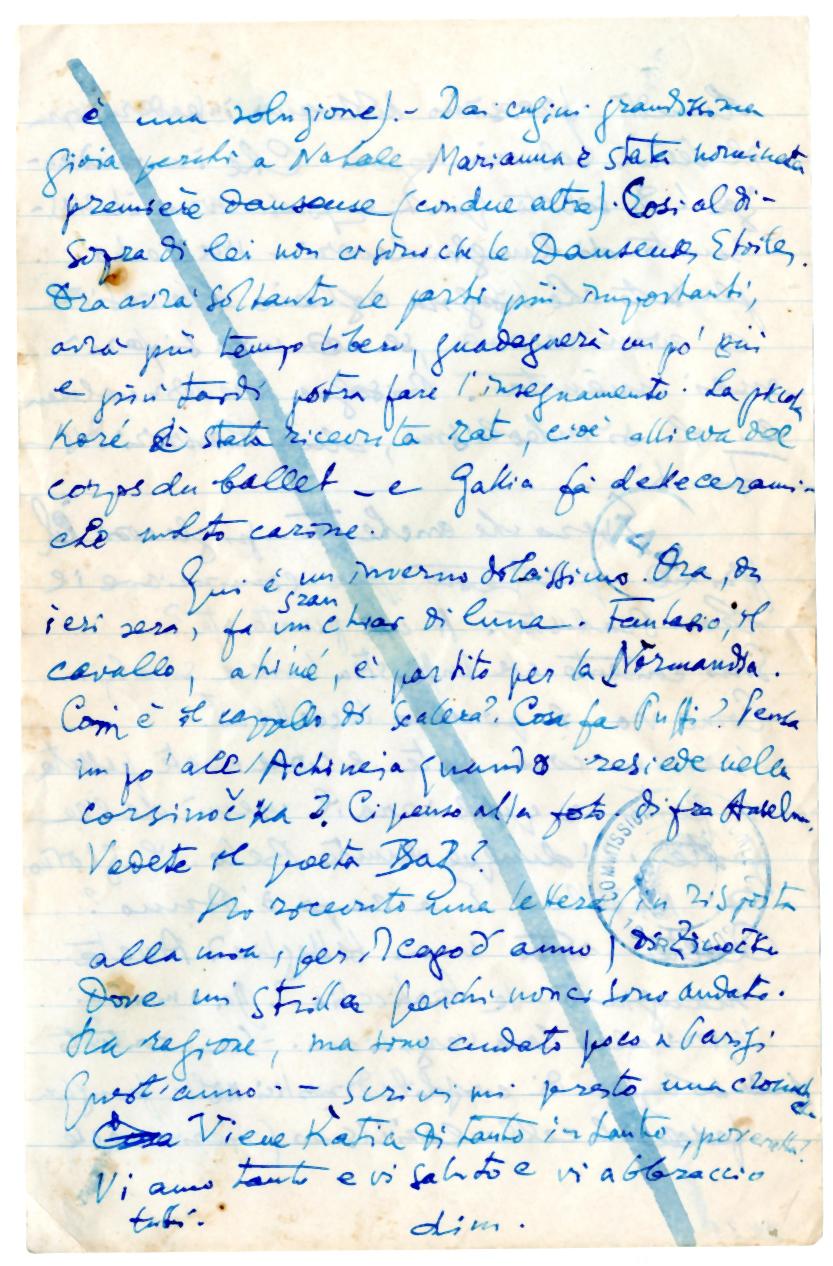 è una soluzione).- Dai cugini grandissima
gioia perché a Natale Marianna è stata nominata
première danseuse (con due altre). Così al di-
sopra di lei non ci sono che le Danseuses Etoiles.
Ora avrà soltanto le parti più importanti,
avrà più tempo libero, guadagnerà un po' più
e più tardi potrà fare l'insegnamento. La piccola
Koré è stata ricevuta rat, cioè allieva del
corps du ballet - e Galia fa delle cerami-
che molto carine.
Qui è un inverno dolcissimo. Ora, da
ieri sera, fa un gran chiar di luna. Fantasio, il
cavallo, ahimé, è partito per la Normandia.
Com'è il cappello di Scalera? Cosa fa Puffi? Pensa
un po' all'Achineia quando risiede nella
corsinočka? Ci penso alla foto di fra Anselmo.
Vedete il poeta
Ho ricevuto una lettera (in risposta
alla mia, per il capo d'anno) di Zinočka
Dove mi strilla perché non ci sono andato.
Ha ragione, ma sono andato poco a Parigi
quest'anno. - Scrivimi presto una cronaca
Viene Katia di tanto in tanto, poveretta?
Vi amo tanto e vi saluto e vi abbraccio
tutti. dim.
COMMISSION